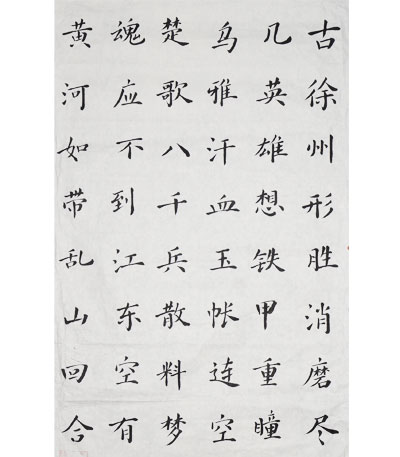 古徐州形胜消磨尽
几英雄想铁甲重瞳
乌雅汗血玉帐连空
楚歌八千兵散料梦
魂应不到江东空有
黄河如带乱山回合